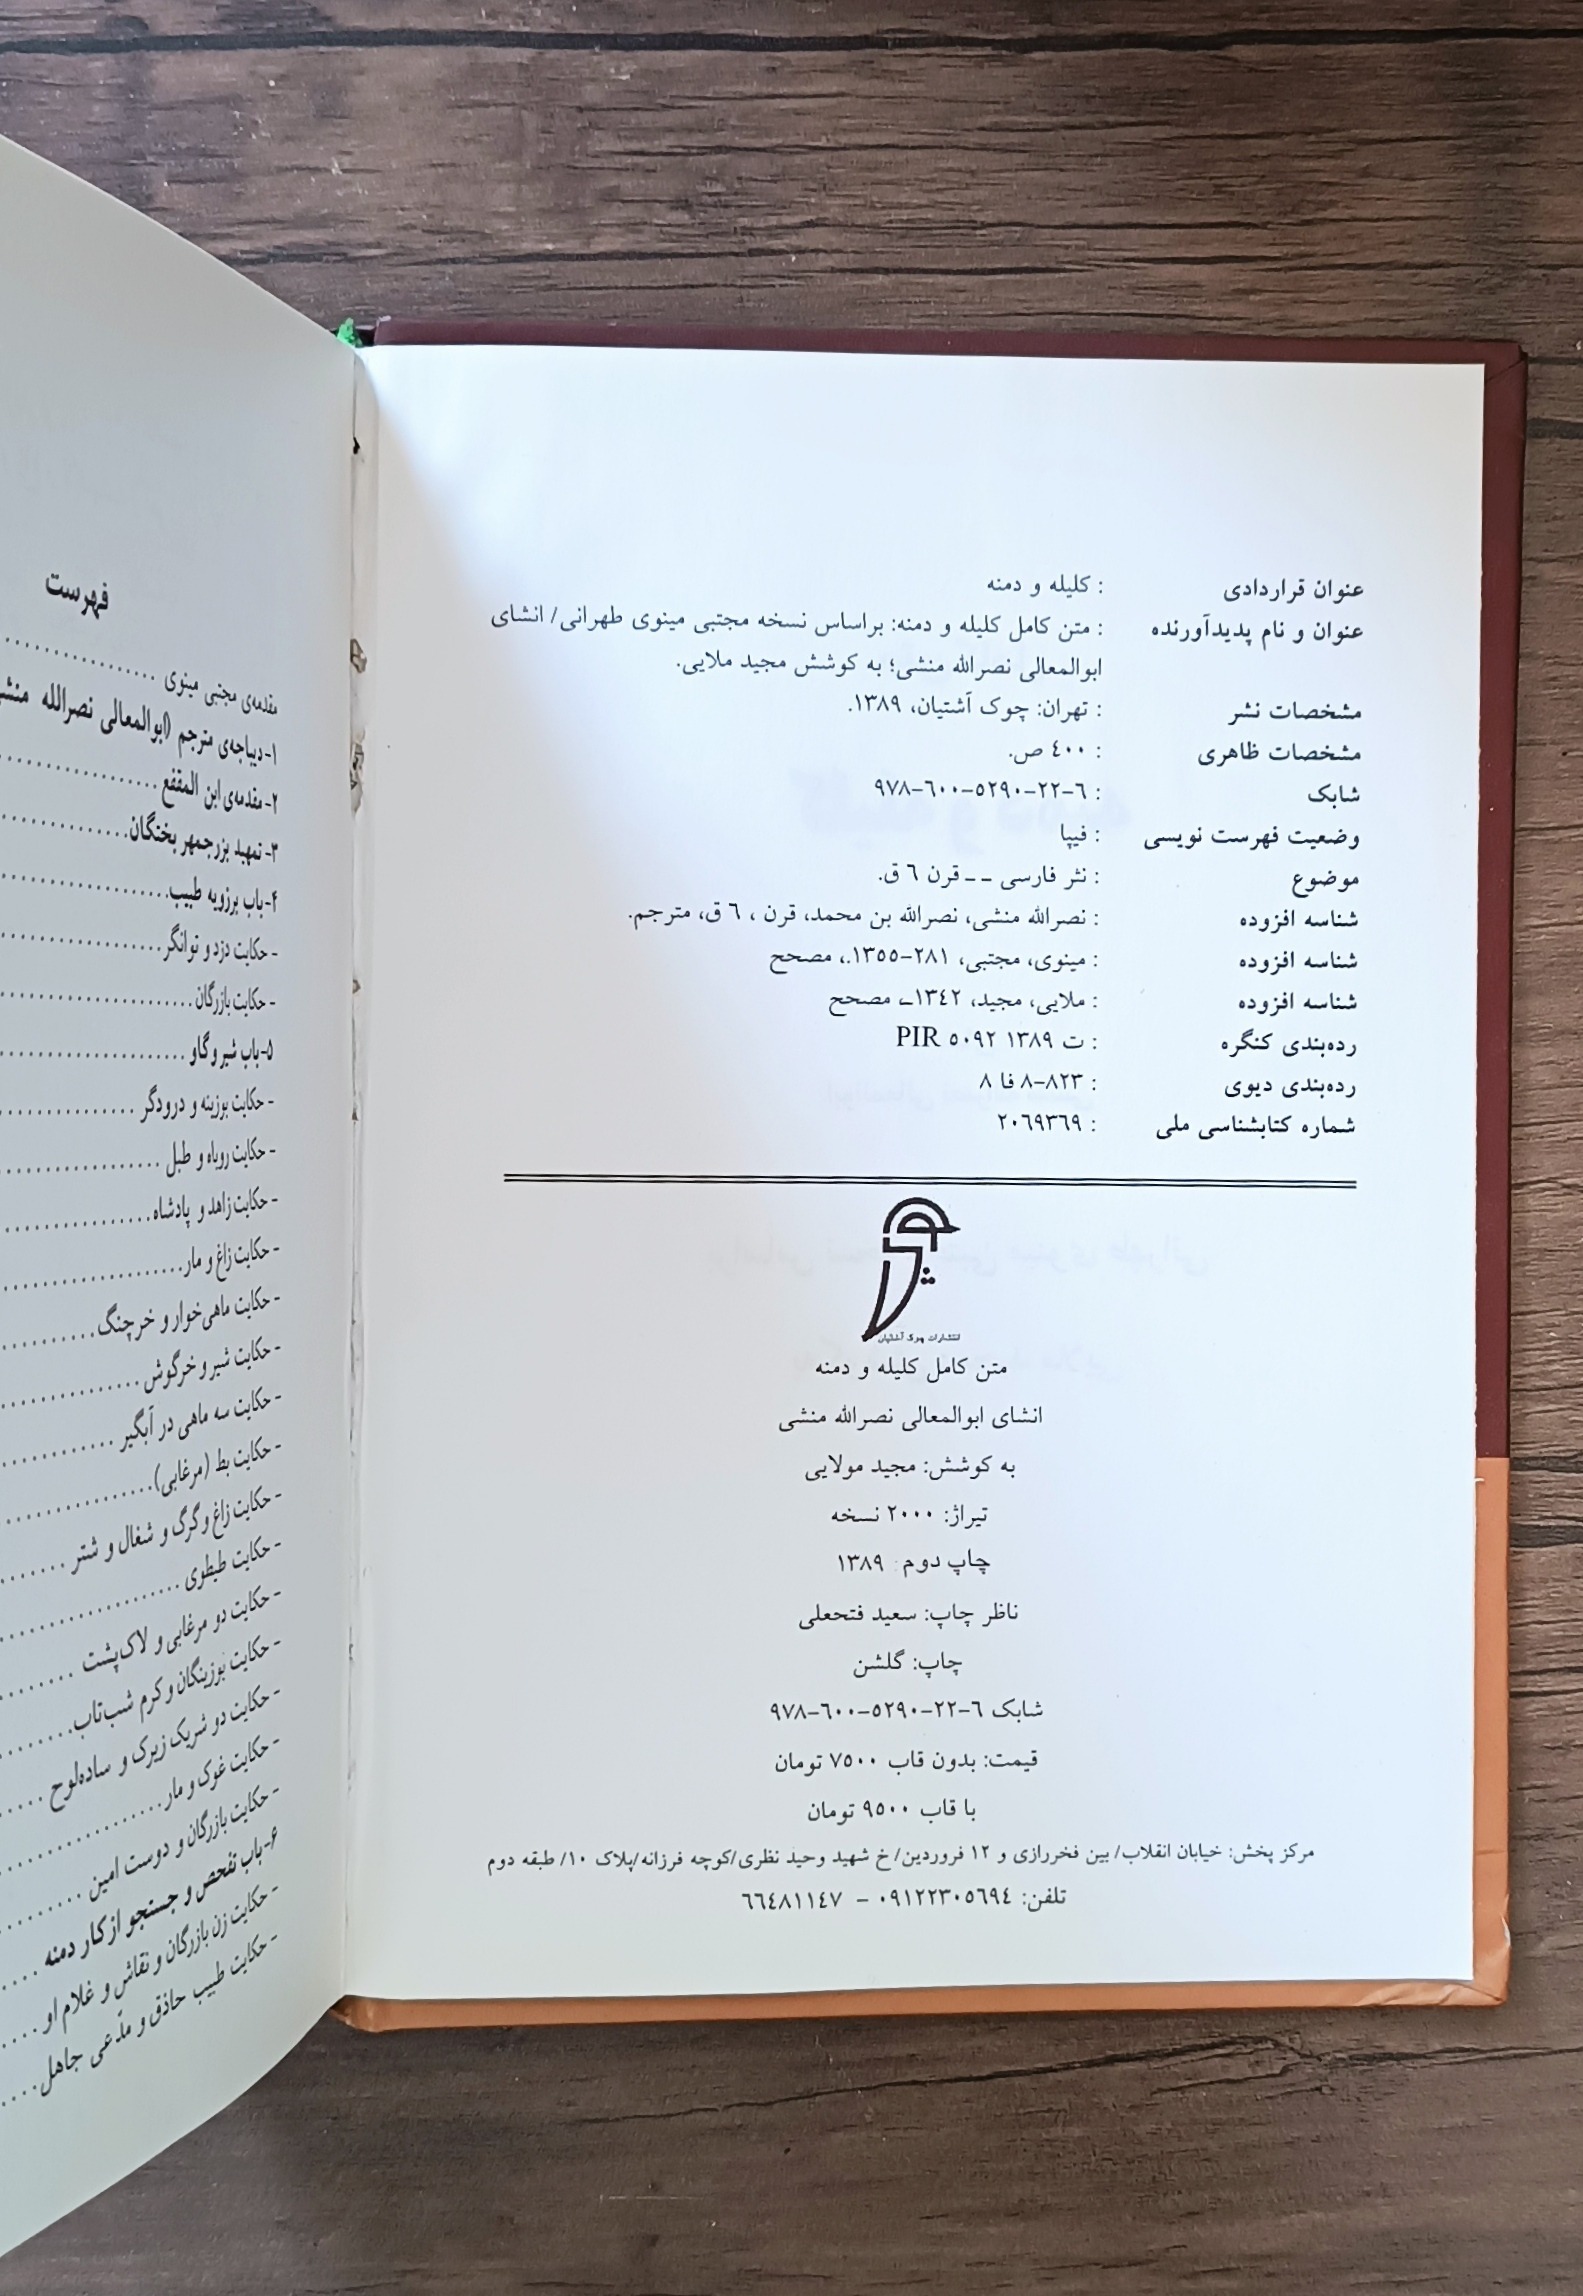 عنوان قراردادی : کلیله و دمنه
عنوان و نام پدیدآورنده : متن کامل کلیله و دمنه: براساس نسخه مجتبی مینوی طهرانی/ انشای
ابوالمعالی نصرالله منشی؛ به کوشش مجید ملایی.
مشخصات نشر : تهران: چوک آشتیان، ۱۳۸۹.
مشخصات ظاهری : ٤٠٠ ص.
شابک : ۹۷۸-٦٠٠-٥٢٩٠-٢٢-٦
وضعیت فهرست نویسی : فیپا
موضوع : نثر فارسی -- قرن ٦ ق.
شناسه افزوده : نصرالله منشی، نصرالله بن محمد، قرن ، ٦ ق، مترجم.
شناسه افزوده : مینوی، مجتبی، ۲۸۱-۱۳٥٥.، مصحح
شناسه افزوده : ملایی، مجید، ۱۳٤۲ـ، مصحح
رده‌بندی کنگره : PIR ٥٠٩٢ ت ١٣٨٩
رده‌بندی دیوی : ٨-٨٢٣ فا ٨
شماره کتابشناسی ملی : ٢٠٦٩٣٦٩
انتشارات چوک آشتیان
متن کامل کلیله و دمنه
انشای ابوالمعالی نصرالله منشی
به کوشش: مجید مولایی
تیراژ: ۲۰۰۰ نسخه
چاپ دوم: ۱۳۸۹
ناظر چاپ: سعید فتحعلی
چاپ: گلشن
شابک ۹۷۸-٦٠٠-٥٢٩٠-٢٢-٦
قیمت: بدون قاب ۷٥٠٠ تومان
با قاب ۹٥٠٠ تومان
مرکز پخش: خیابان انقلاب/ بین فخررازی و ۱۲ فروردین/ خ شهید وحید نظری/کوچه فرزانه/پلاک ۱۰/ طبقه دوم
تلفن: ۰۹۱۲۲۳۰٥٦٩٤ – ٦٦٤٨١١٤٧
فهرست
مقدمه‌ی مجتبی مینوی
۱- دیباجه‌ی مترجم (ابوالمعالی نصرالله منشی
۲- مقدمه‌ی ابن المقفع
۳- تمهید بزرجمهر بختگان
۴- باب برزویه طبیب
- حکایت دزد و توانگر
- حکایت بازرگان
۵- باب شیر و گاو
- حکایت بوزینه و درودگر
- حکایت روباه و طبل
- حکایت زاهد و پادشاه
- حکایت زاغ و مار
- حکایت ماهی‌خوار و خرچنگ
- حکایت شیر و خرگوش
- حکایت سه ماهی در آبگیر
- حکایت بط (مرغابی)
- حکایت زاغ و گرگ و شغال و شتر
- حکایت طیطوی
- حکایت دو مرغابی و لاک‌پشت
- حکایت بوزینگان و کرم شب‌تاب
- حکایت دو شریک زیرک و ساده‌لوح
- حکایت غوک و مار
- حکایت بازرگان و دوست امین
۶- باب تفحص و جستجو از کار دمنه
- حکایت زن بازرگان و نقاش و غلام او
- حکایت طبیب حاذق و مدّعی جاهل